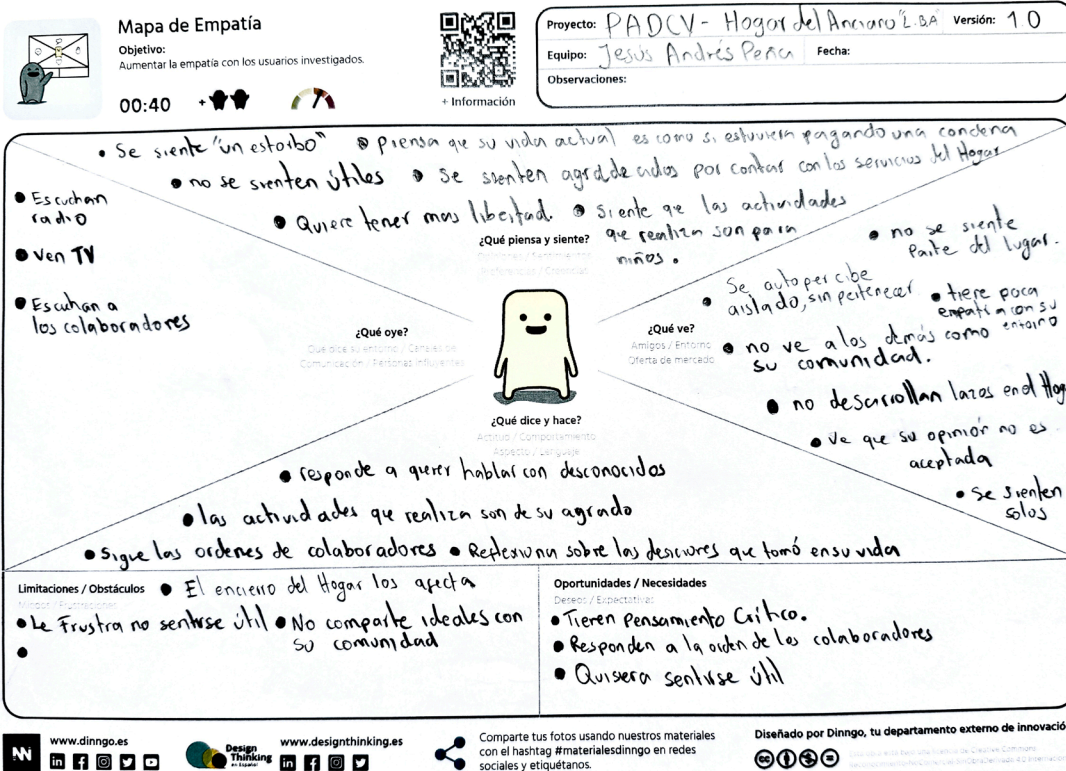 Mapa de Empatía
Objetivo:
Aumentar la empatía con los usuarios investigados.
00:40
+
+ Información
Proyecto: PADCV - Hogar del Anciano "L.BA" Versión: 1.0
Equipo: Jesús Andrés Peña Fecha:
Observaciones:
• Se siente "un estorbo" • piensa que su vida actual es como si estuviera pagando una condena
• no se sienten útiles • Se sienten agradecidos por contar con los servicios del Hogar
• Quiere tener mas libertad. • Siente qe las actividades
que realizan son para
niños.
¿Qué piensa y siente?
Opiniones / Sentimientos
Preferencias / Creencias
• Escuchan
radio
• Ven TV
• Escuhan a
los colaboradores
¿Qué oye?
Qué dice su entorno / Canales de
Comunicación / Personas influyentes
¿Qué ve?
Amigos / Entorno
Oferta de mercado
• no se siente
Parte del lugar.
• Se autopercibe
aislado, sin pertenecer
• tiene poca
empatía con su
entorno
• no ve a los demás como
su comunidad.
• no desarrollan lazos en el Hog
• Ve que su opinión no es
aceptada
• Se sienten
solos
¿Qué dice y hace?
Actitud / Comportamiento
Aspecto / Lenguaje
• responde a querer hablar con desconocidos
• las actividades qe realiza son de su agrado
• Sigue las ordenes de colaboradores • Reflexiona sobre las desiciones que tomó en su vida
Limitaciones / Obstáculos
Miedos / Frustraciones
• El encierro del Hogar los afecta
• Le Frustra no sentirse útil • No comparte ideales con
su comunidad
•
Oportunidades / Necesidades
Deseos / Expectativas
• Tienen pensamiento Crítico.
• Responden a la orden de los colaboradores
• Quisiera sentirse útil
www.dinngo.es
Design
Thinking
en Español
www.designthinking.es
Comparte tus fotos usando nuestros materiales
con el hashtag #materialesdinngo en redes
sociales y etiquétanos.
Diseñado por Dinngo, tu departamento externo de innovació